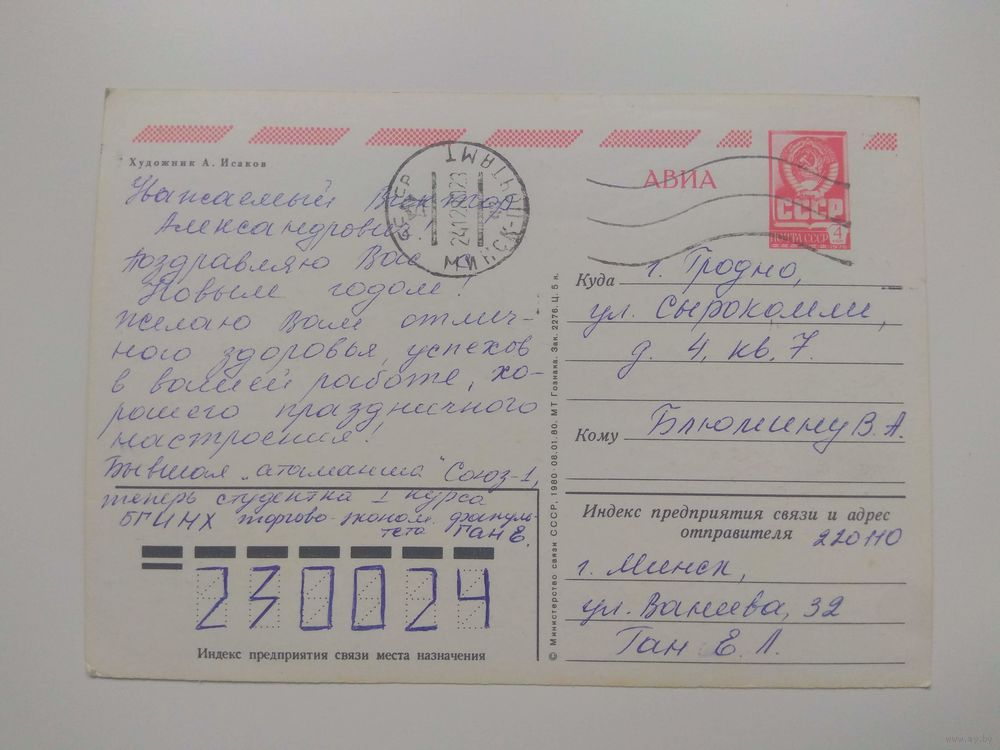 Художник А. Исаков
АВИА
СССР
ПОЧТА СССР
4
Уважаемый Виктор
Александрович!
Поздравляю Вас с
Новым годом!
Желаю Вам отлич-
ного здоровья, успехов
в вашей работе, хо-
рошего праздничного
настроения!
Бывшая „атаманша" Союз-1,
теперь студентка 1 курса
БГИНХ торгово-эконом. факуль-
тета Ган Е.
230024
Индекс предприятия связи места назначения
© Министерство связи СССР, 1980 · 08.01.80. МТ Гознака. Зак. 2276. Ц. 5 к.
Куда г. Гродно,
ул. Сырокомли,
д. 4, кв. 7.
Кому Блюмину В. А.
Индекс предприятия связи и адрес
отправителя 220110
г. Минск,
ул. Ванеева, 32
Ган Е. Л.
МИНСК-ПОЧТАМТ
www.ay.by